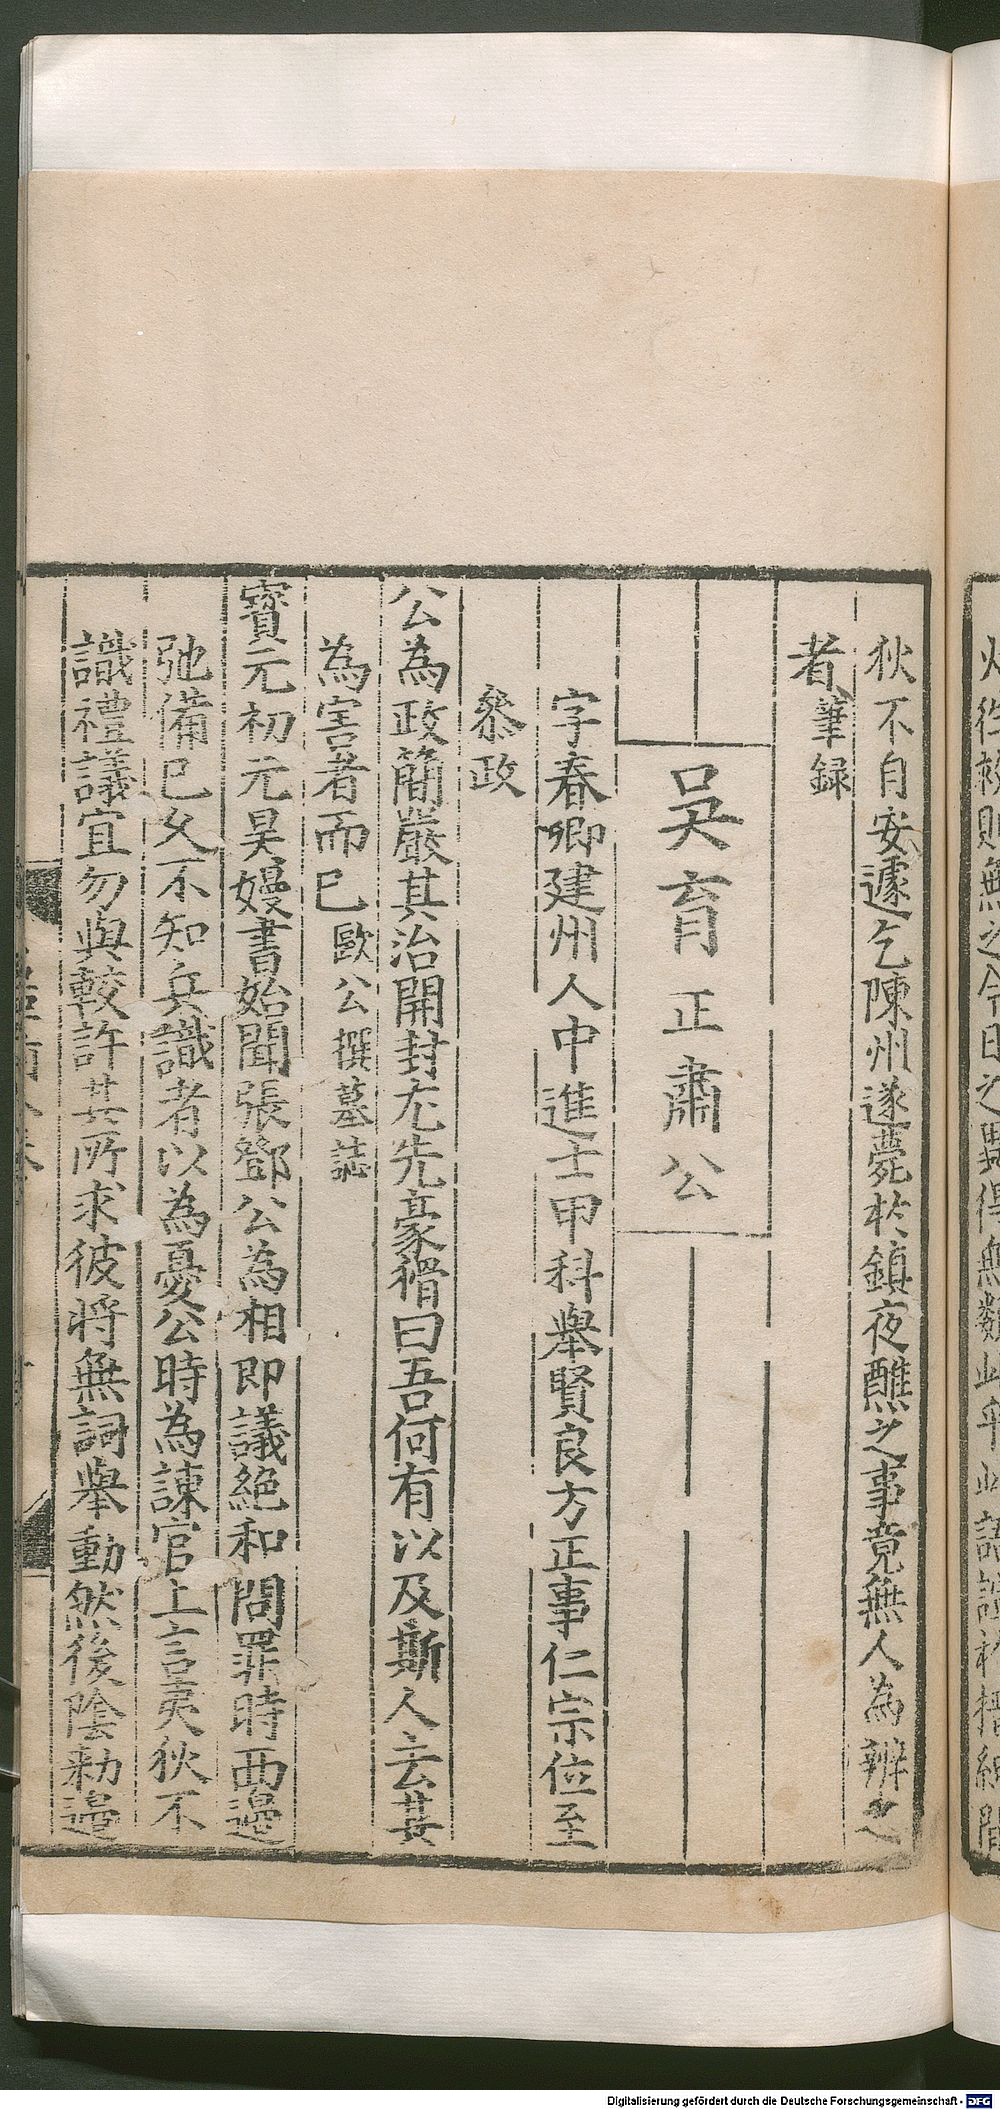 狄不自安遽乞陳州遂薨於鎮夜醮之事竟無人為辨之
者筆録
吳育正肅公
字春卿建州人中進士甲科舉賢良方正事仁宗位至
叅政
公為政簡嚴其治開封尤先豪猾曰吾何有以及斯人去其
為害者而已歐公撰墓誌
寳元初元昊嫚書始聞張鄧公為相即議絕和問罪時西邊
弛備已久不知兵識者以為憂公時為諫官上言夷狄不
識禮議宜勿與較許其所求彼將無詞舉動然後陰勑邊
Digitalisierung gefördert durch die Deutsche Forschungsgemeinschaft - DFG